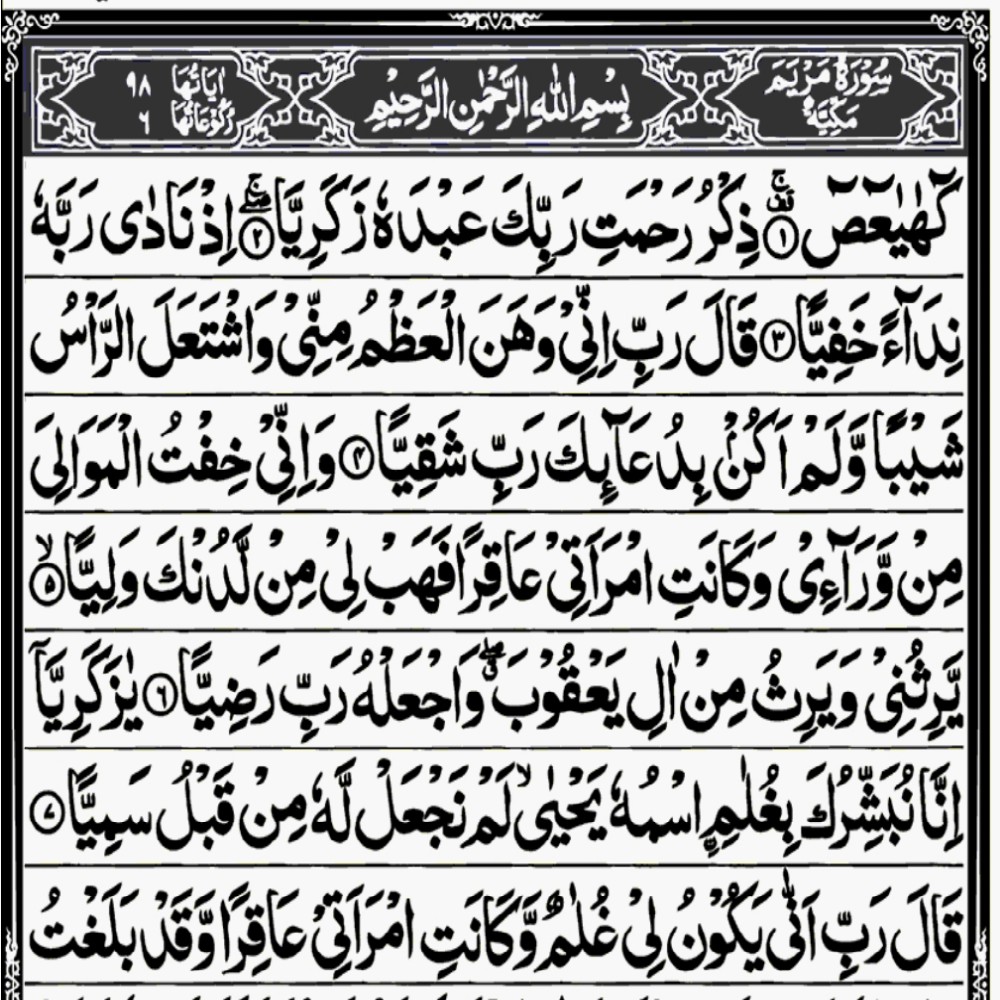 سُوۡرَةُ مَرۡيَمَ مَكِّيَّةٌ
بِسۡمِ اللهِ الرَّحۡمٰنِ الرَّحِيۡمِ
اٰيَاتُهَا ٩٨
رُكُوۡعَاتُهَا ٦
كٓهٰيٰعٓصٓ ۚ‏﴿۱﴾ ذِكۡرُ رَحۡمَتِ رَبِّكَ عَبۡدَهٗ زَكَرِيَّا ۖۚ‏﴿۲﴾ اِذۡ نَادٰى رَبَّهٗ
نِدَآءً خَفِيًّا‏﴿۳﴾ قَالَ رَبِّ اِنِّىۡ وَهَنَ الۡعَظۡمُ مِنِّىۡ وَاشۡتَعَلَ الرَّاۡسُ
شَيۡبًا وَّلَمۡ اَكُنۡۢ بِدُعَآٮِٕكَ رَبِّ شَقِيًّا‏﴿۴﴾ وَاِنِّىۡ خِفۡتُ الۡمَوَالِىَ
مِنۡ وَّرَآءِىۡ وَكَانَتِ امۡرَاَتِىۡ عَاقِرًا فَهَبۡ لِىۡ مِنۡ لَّدُنۡكَ وَلِيًّا ۙ‏﴿۵﴾
يَّرِثُنِىۡ وَيَرِثُ مِنۡ اٰلِ يَعۡقُوۡبَ ‌ۖ وَاجۡعَلۡهُ رَبِّ رَضِيًّا‏﴿۶﴾ يٰزَكَرِيَّاۤ
اِنَّا نُبَشِّرُكَ بِغُلٰمِ ۨاسۡمُهٗ يَحۡيٰى ۙ لَمۡ نَجۡعَلْ لَّهٗ مِنۡ قَبۡلُ سَمِيًّا‏﴿۷﴾
قَالَ رَبِّ اَنّٰى يَكُوۡنُ لِىۡ غُلٰمٌ وَّكَانَتِ امۡرَاَتِىۡ عَاقِرًا وَّقَدۡ بَلَغۡتُ